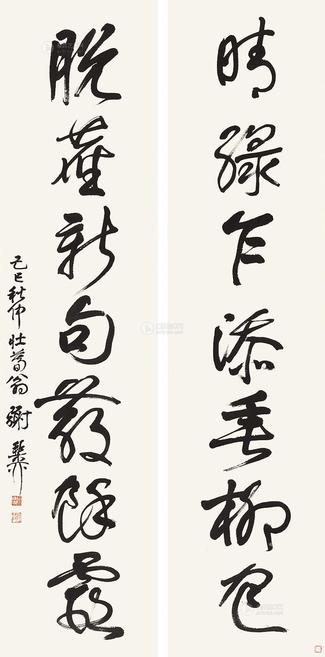 晴綠乍添垂柳色
脫新句散餘霞
己巳秋仲壯暮翁謝稚柳